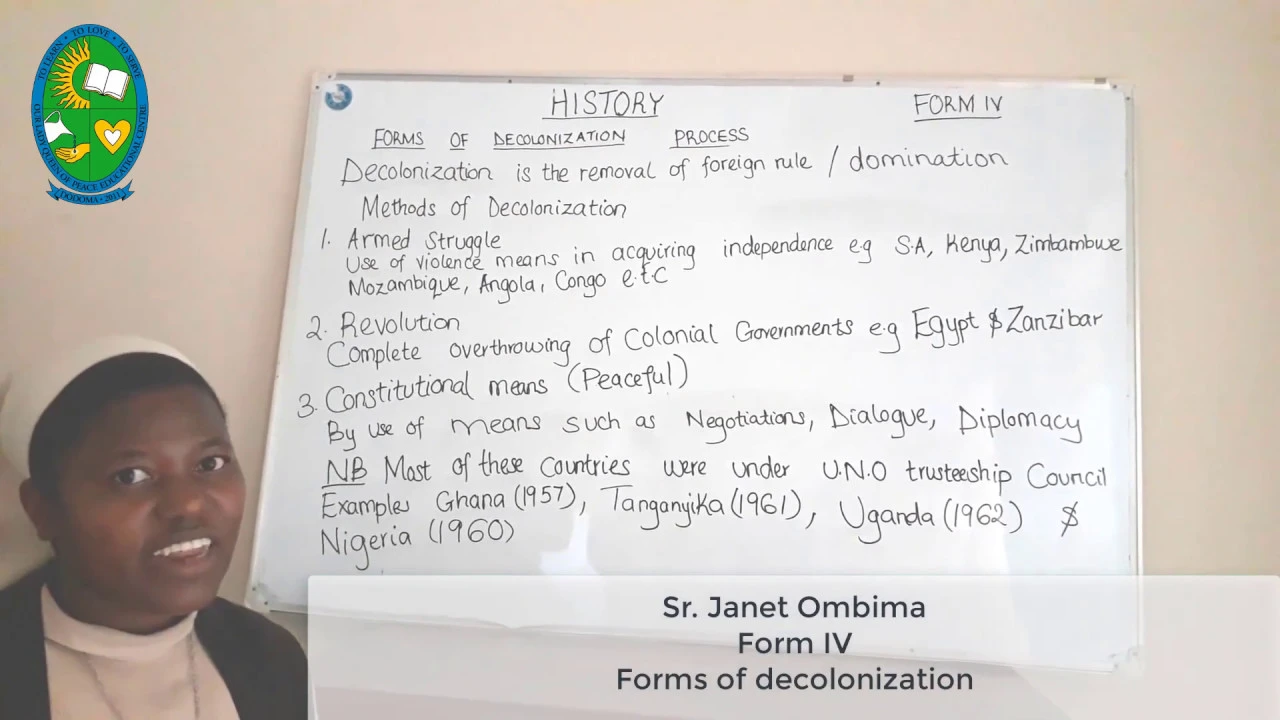 TO LEARN · TO LOVE · TO SERVE
OUR LADY QUEEN OF PEACE EDUCATIONAL CENTRE
DODOMA · 2011
HISTORY
FORM IV
FORMS OF DECOLONIZATION PROCESS
Decolonization is the removal of foreign rule / domination
Methods of Decolonization
1. Armed Struggle
Use of violence means in acquiring independence e.g S.A, Kenya, Zimbambwe
Mozambique, Angola, Congo e.t.c
2. Revolution
Complete overthrowing of Colonial Governments e.g Egypt $ Zanzibar
3. Constitutional means (Peaceful)
By use of means such as Negotiations, Dialogue, Diplomacy
NB Most of these Countries were under U.N.O trusteeship Council
Examples Ghana (1957), Tanganyika (1961), Uganda (1962) $
Nigeria (1960)
Sr. Janet Ombima
Form IV
Forms of decolonization